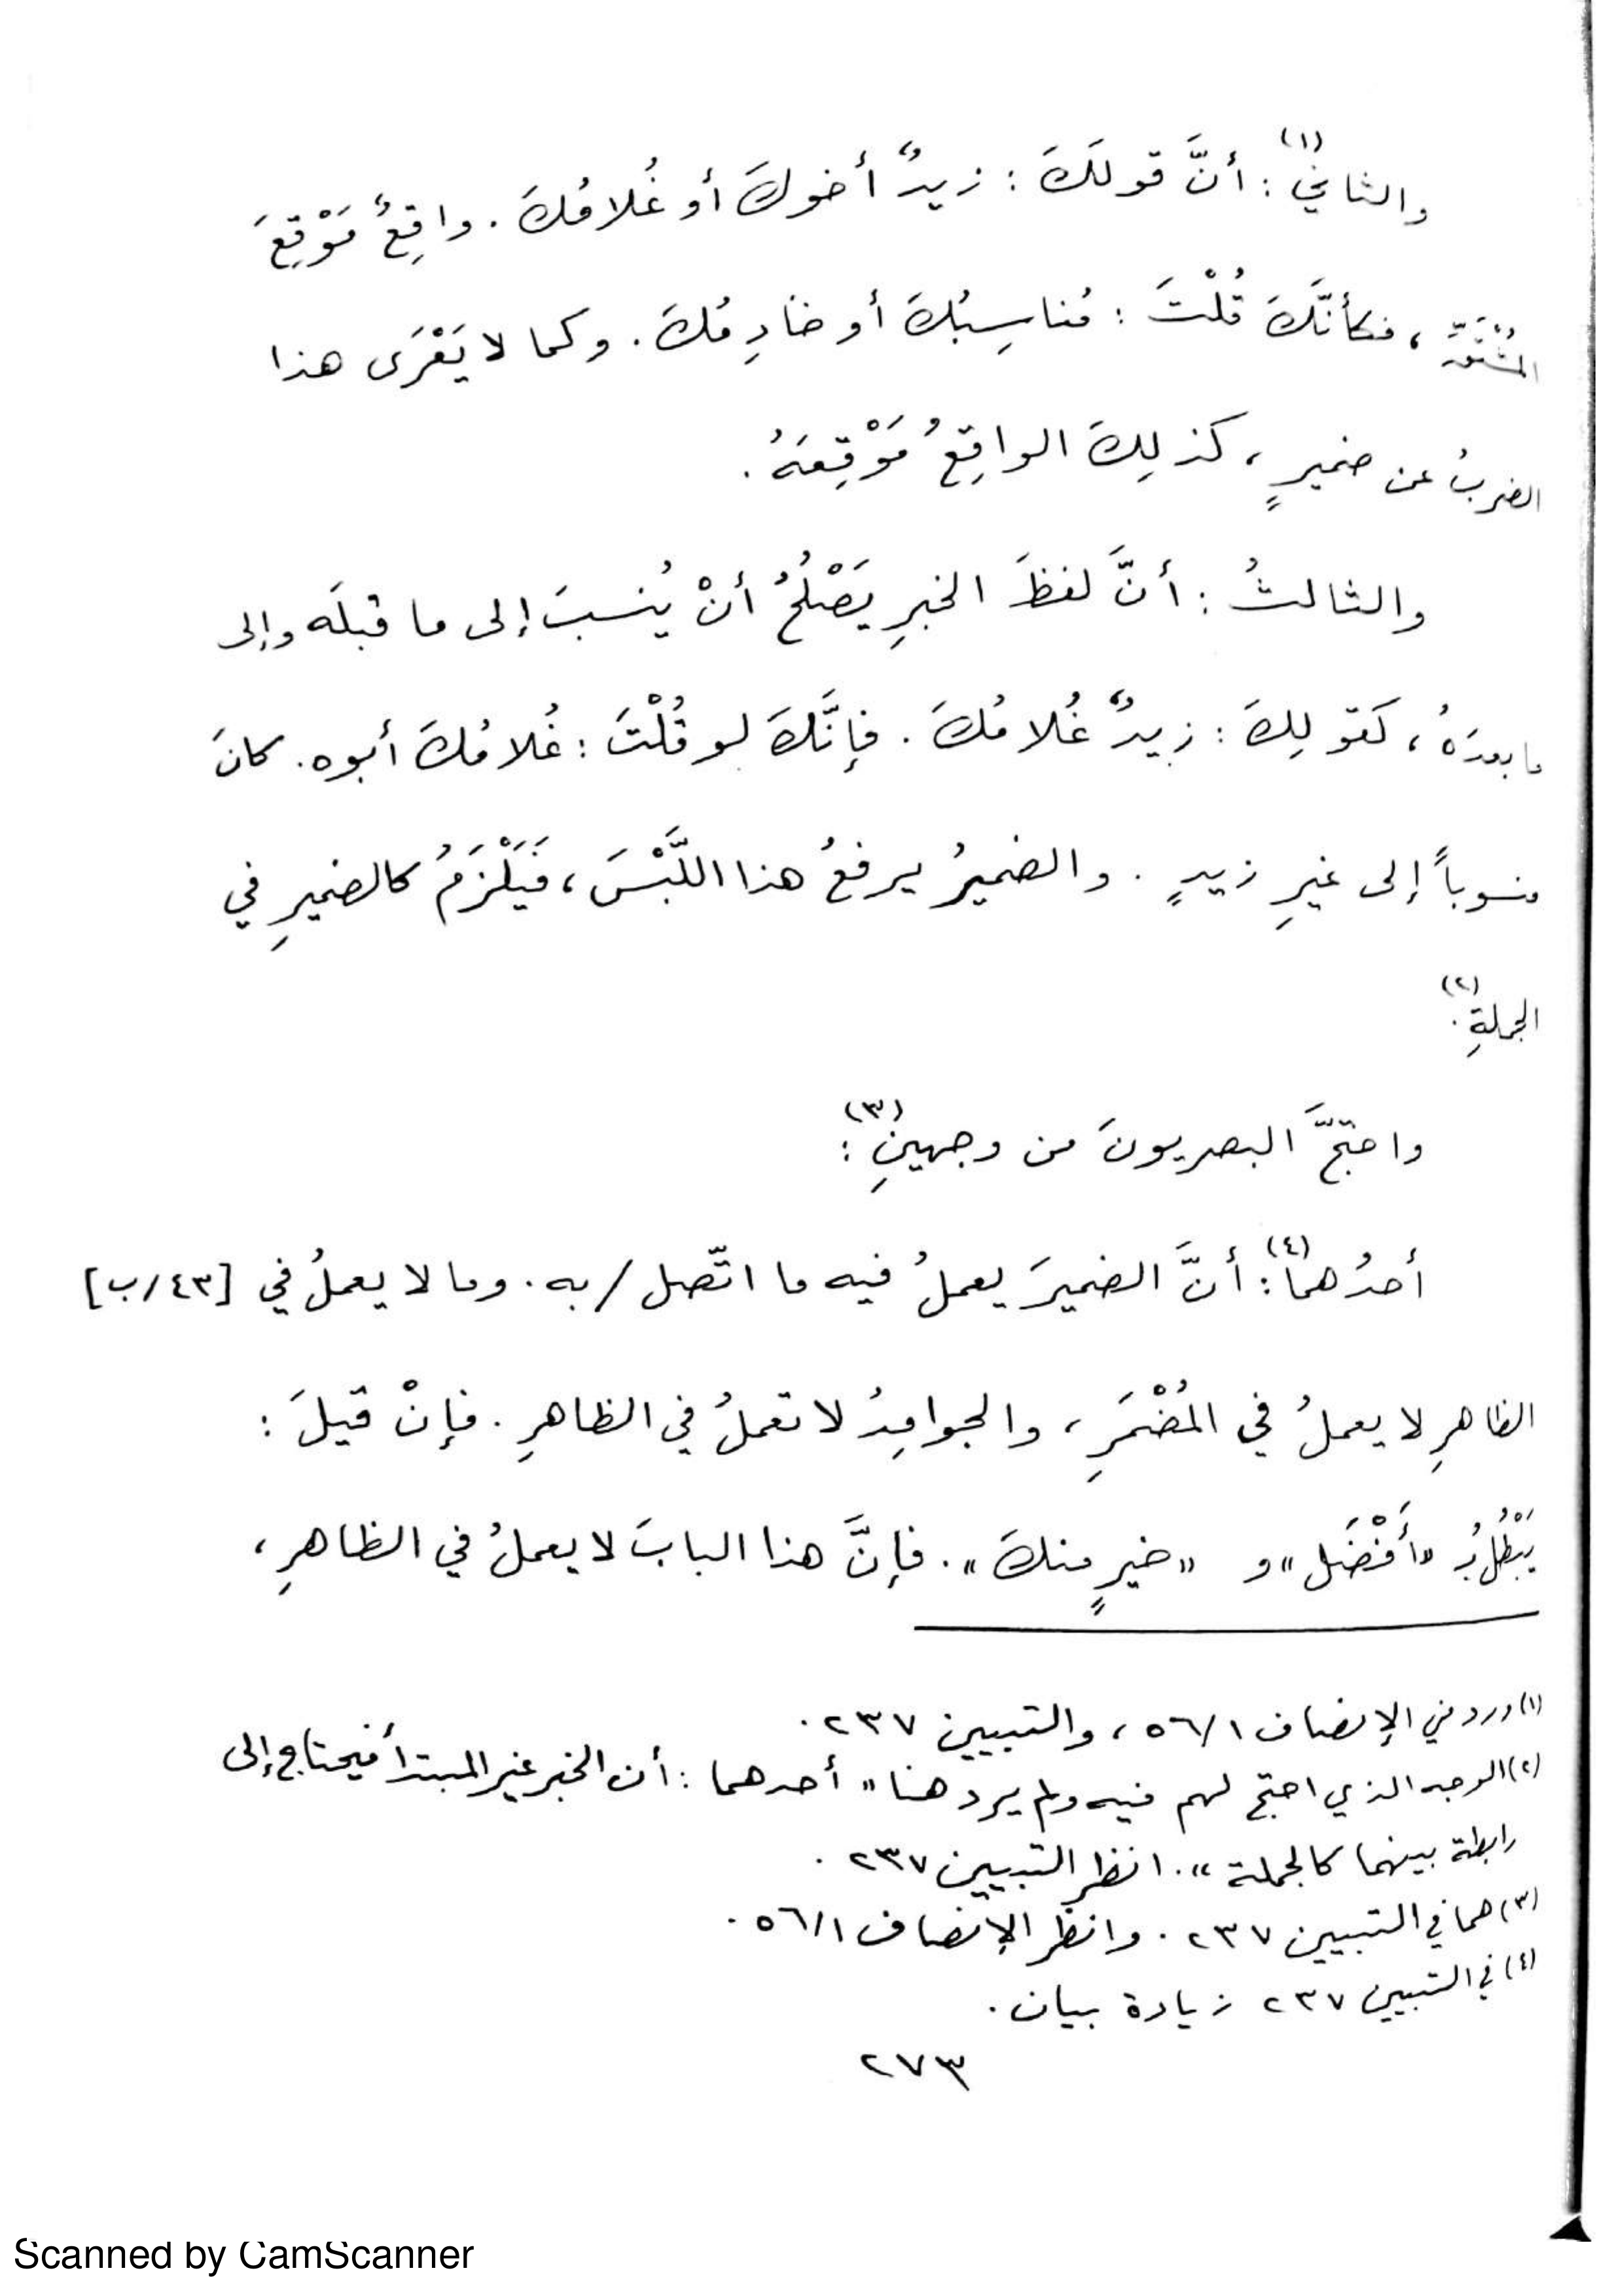 والثاني(١): أنَّ قولَكَ: زيدٌ أخوكَ أو غُلامُكَ. واقِعٌ مَوْقِعَ
المُشْتَقِّ، فكأنَّكَ قُلْتَ: مُناسِبُكَ أو خادِمُكَ. وكما لا يَعْرَى هذا
الضربُ عن ضميرٍ، كذلِكَ الواقِعُ مَوْقِعَهُ.
والثالثُ: أنَّ لفظَ الخبرِ يَصْلُحُ أنْ يُنسبَ إلى ما قبلَه وإلى
ما بعدَهُ، كَقولِكَ: زيدٌ غُلامُكَ. فإنَّكَ لو قُلْتَ: غُلامُكَ أبوه. كانَ
منسوباً إلى غيرِ زيدٍ. والضميرُ يرفعُ هذا اللَّبْسَ، فَيَلْزَمُ كالضميرِ في
الجملةِ(٢).
واحتجَّ البصريونَ من وجهينِ(٣):
أحدُهما(٤): أنَّ الضميرَ يعملُ فيه ما اتّصل / به. وما لا يعملُ في [٤٣/ب]
الظاهرِ لا يعملُ في المُضْمَرِ، والجوامِدُ لا تعملُ في الظاهرِ. فإنْ قيلَ:
يَبْطُلُ بـ «أَفْضَل» و «خيرٍ منكَ». فإنَّ هذا البابَ لا يعملُ في الظاهرِ،
(١) ورد في الإنصاف ٥٦/١، والتبيين ٢٣٧.
(٢) الوجه الذي احتج لهم فيه ولم يرد هنا «أحدهما: أن الخبر غير المبتدأ فيحتاج إلى
رابطة بينهما كالجملة». انظر التبيين ٢٣٧.
(٣) هما في التبيين ٢٣٧. وانظر الإنصاف ٥٦/١.
(٤) في التبيين ٢٣٧ زيادة بيان.
٢٧٣
Scanned by CamScanner